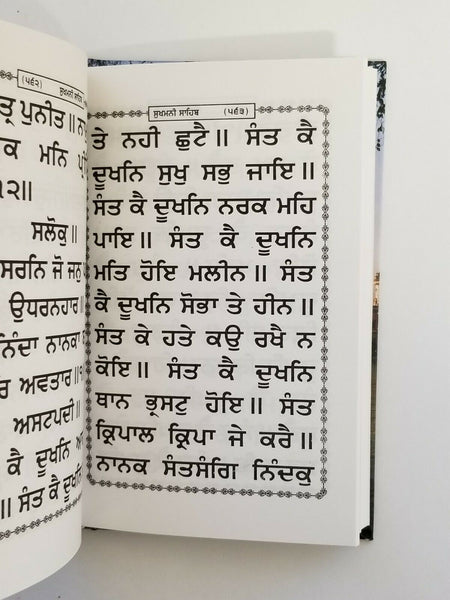 (੫੬੨) ਸੁਖਮਨੀ ਸਾਹਿਬ
ਪੁਨੀਤ ॥
ਕ ਮਨਿ
ਸਲੋਕੁ ॥
ਸਰਨਿ ਜੋ ਜਨੁ
ਉਧਰਨਹਾਰ ॥
ਨਿੰਦਾ ਨਾਨਕਾ
ਅਵਤਾਰ ॥
ਅਸਟਪਦੀ ॥
ਕੈ ਦੂਖਨਿ
॥ ਸੰਤ ਕੈ ਦੂਖਨਿ
ਸੁਖਮਨੀ ਸਾਹਿਬ (੫੬੩)
ਤੇ ਨਹੀ ਛੁਟੈ ॥ ਸੰਤ ਕੈ
ਦੂਖਨਿ ਸੁਖੁ ਸਭੁ ਜਾਇ ॥
ਸੰਤ ਕੈ ਦੂਖਨਿ ਨਰਕ ਮਹਿ
ਪਾਇ ॥ ਸੰਤ ਕੈ ਦੂਖਨਿ
ਮਤਿ ਹੋਇ ਮਲੀਨ ॥ ਸੰਤ
ਕੈ ਦੂਖਨਿ ਸੋਭਾ ਤੇ ਹੀਨ ॥
ਸੰਤ ਕੇ ਹਤੇ ਕਉ ਰਖੈ ਨ
ਕੋਇ ॥ ਸੰਤ ਕੈ ਦੂਖਨਿ
ਥਾਨ ਭ੍ਰਸਟੁ ਹੋਇ ॥ ਸੰਤ
ਕ੍ਰਿਪਾਲ ਕ੍ਰਿਪਾ ਜੇ ਕਰੈ ॥
ਨਾਨਕ ਸੰਤਸੰਗਿ ਨਿੰਦਕੁ